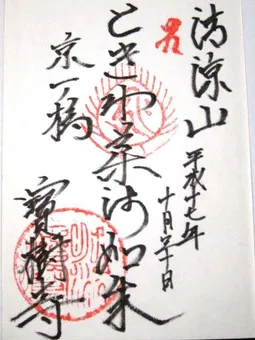 清涼山
平成十七年
十月 十日
ときは薬師如来
京一ノ橋
寶樹寺